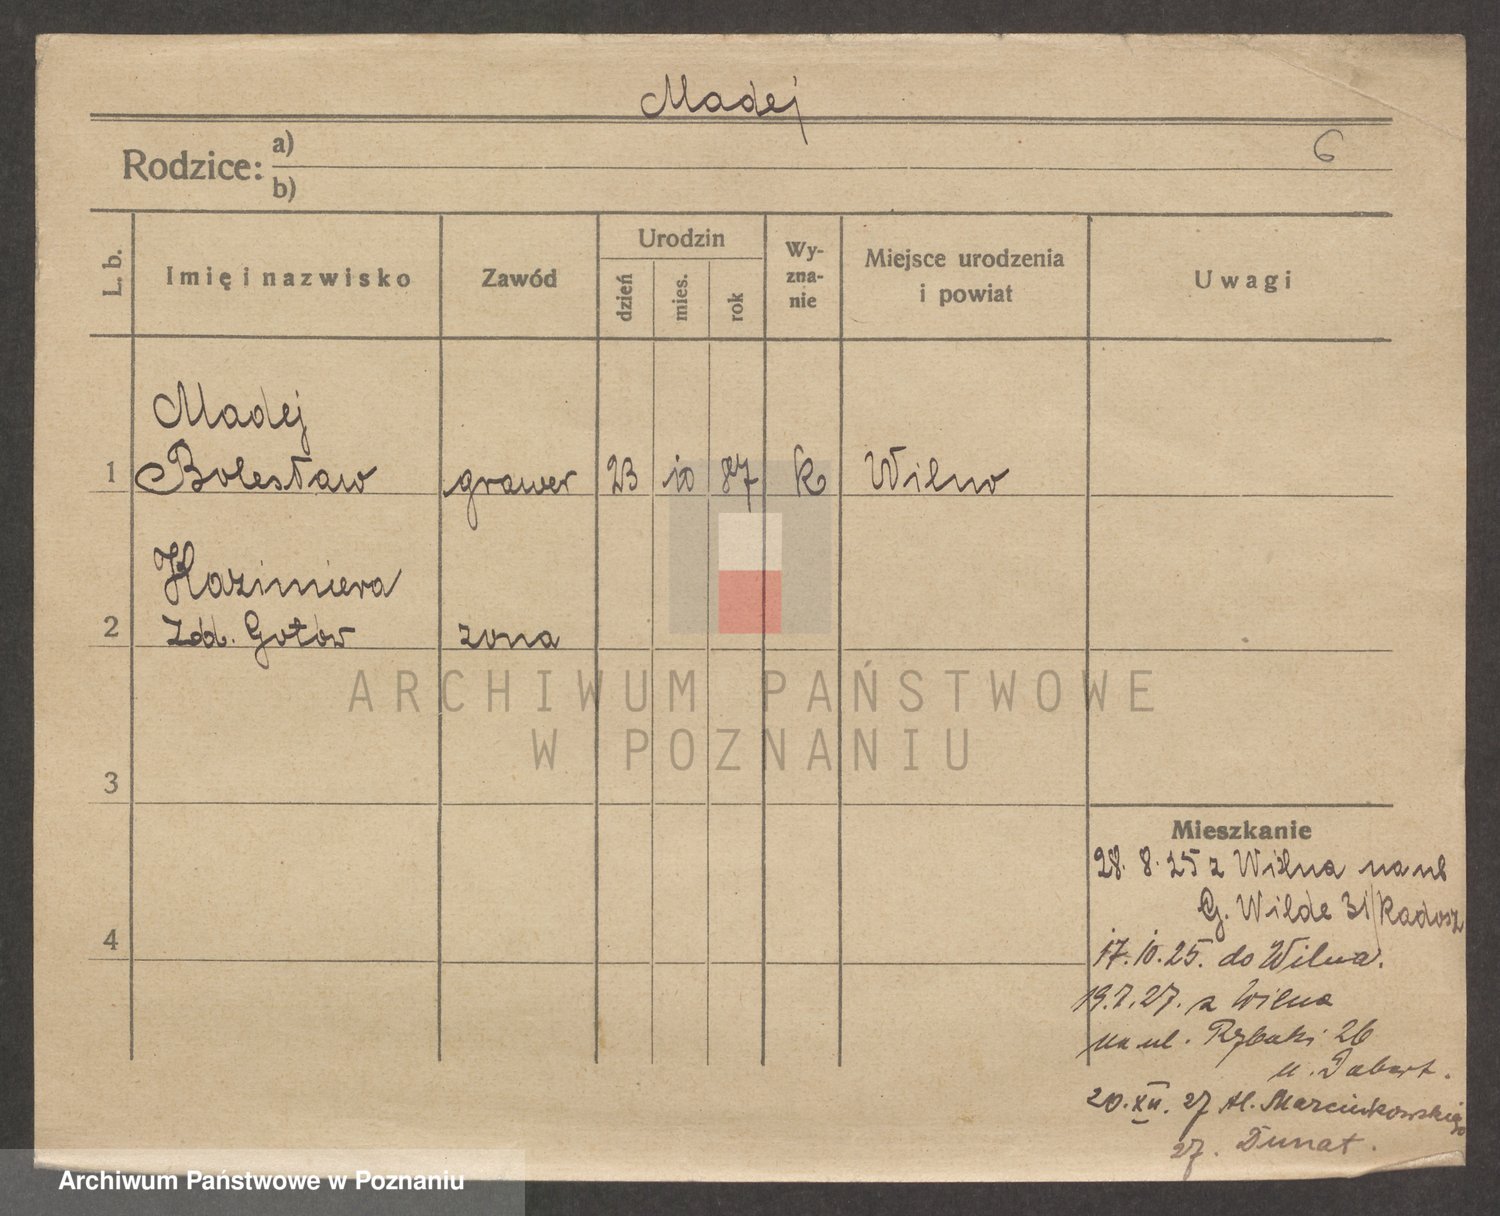 Madej
6
Rodzice: a)
b)
L. b.
Imię i nazwisko
Zawód
Urodzin
dzień
mies.
rok
Wy-
zna-
nie
Miejsce urodzenia
i powiat
Uwagi
Madej
1 Bolesław grawer 23 10 87 k Wilno
Kazimiera
2 Gołów żona
3
4
Mieszkanie
28. 8. 25 z Wilna na ul
G. Wilde 31/Radosz
17.10.25. do Wilna.
19.7.27. z Wilna
na ul. Rybaki 26
u.
20.XII. 27 Al. Marcinkowskiego
27. Dunat.
ARCHIWUM PAŃSTWOWE
W POZNANIU
Archiwum Państwowe w Poznaniu